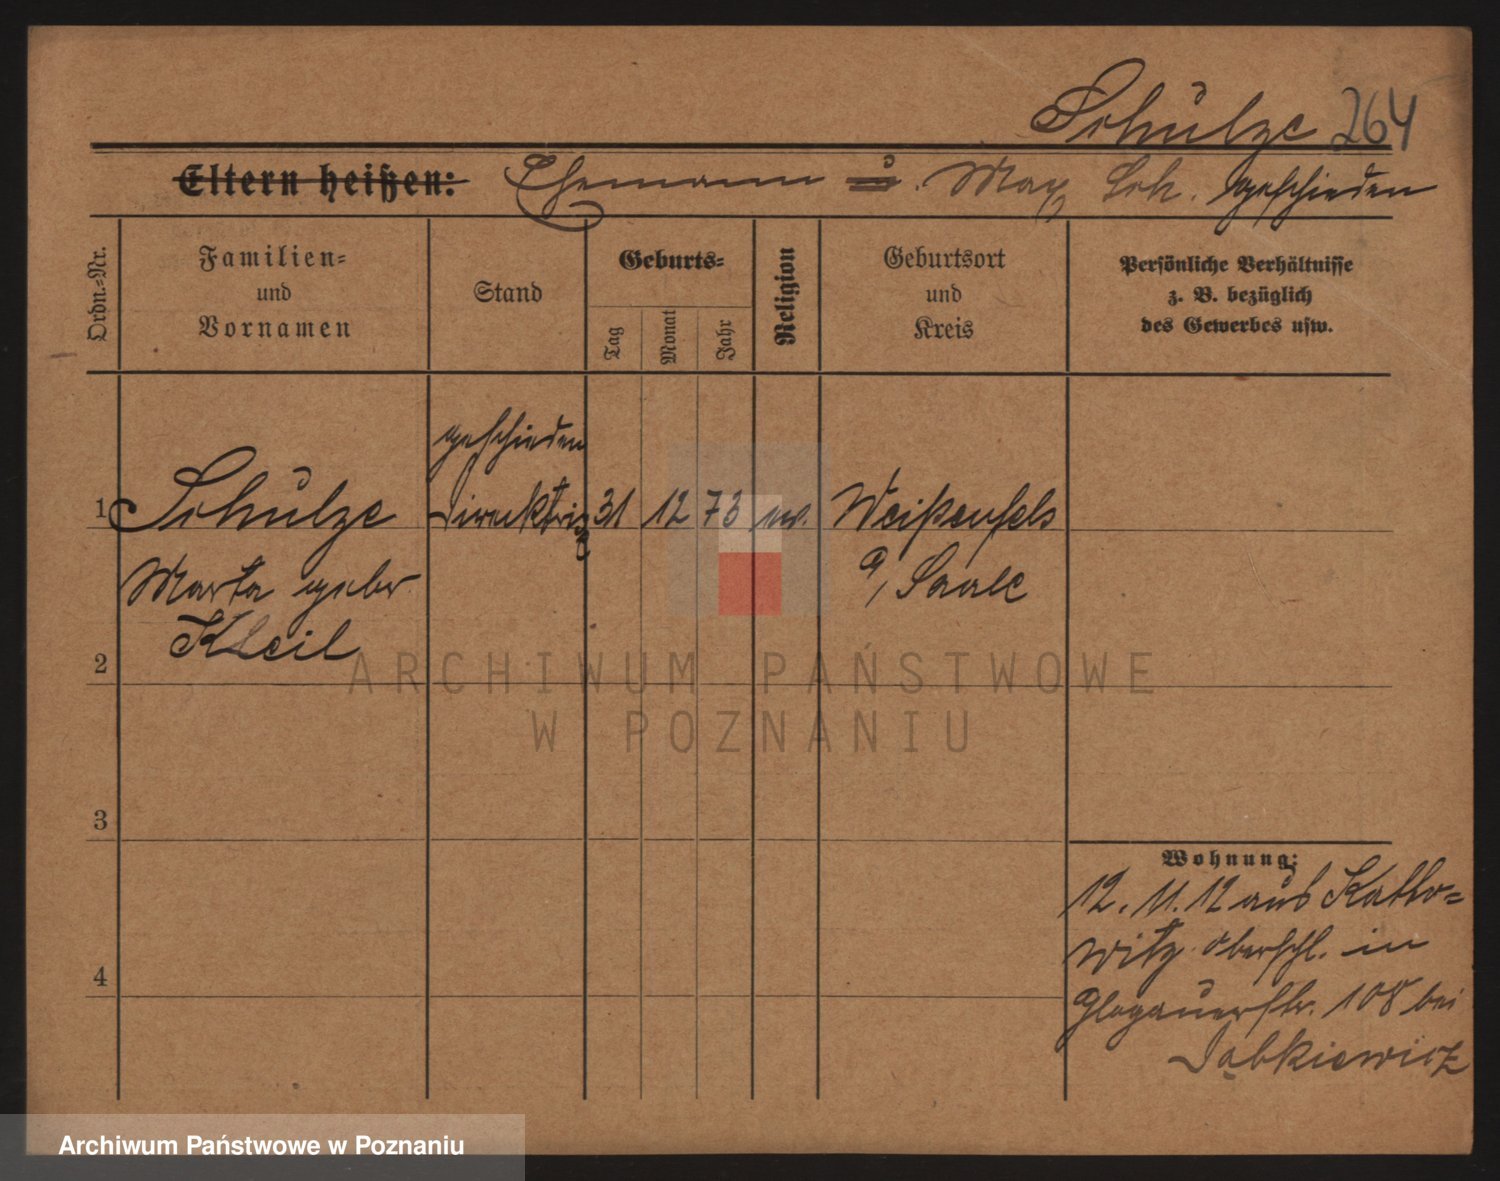 Schulze 264
Eltern heißen: Ehemann u. Max Sch. geschieden
Ordn.-Nr.
Familien-
und
Vornamen
Stand
Geburts-
Tag
Monat
Jahr
Religion
Geburtsort
und
Kreis
Persönliche Verhältnisse
z. B. bezüglich
des Gewerbes usw.
geschieden
1 Schulze Direktriz 31 12 73 ev. Weißenfels
Marta gebr a/ Saale
Kleil
2
3
4
Wohnung:
12. 11. 12 aus Katto-
witz Oberschl. in
Glogauerstr. 108 bei
Dąbkiewicz
ARCHIWUM PAŃSTWOWE
W POZNANIU
Archiwum Państwowe w Poznaniu